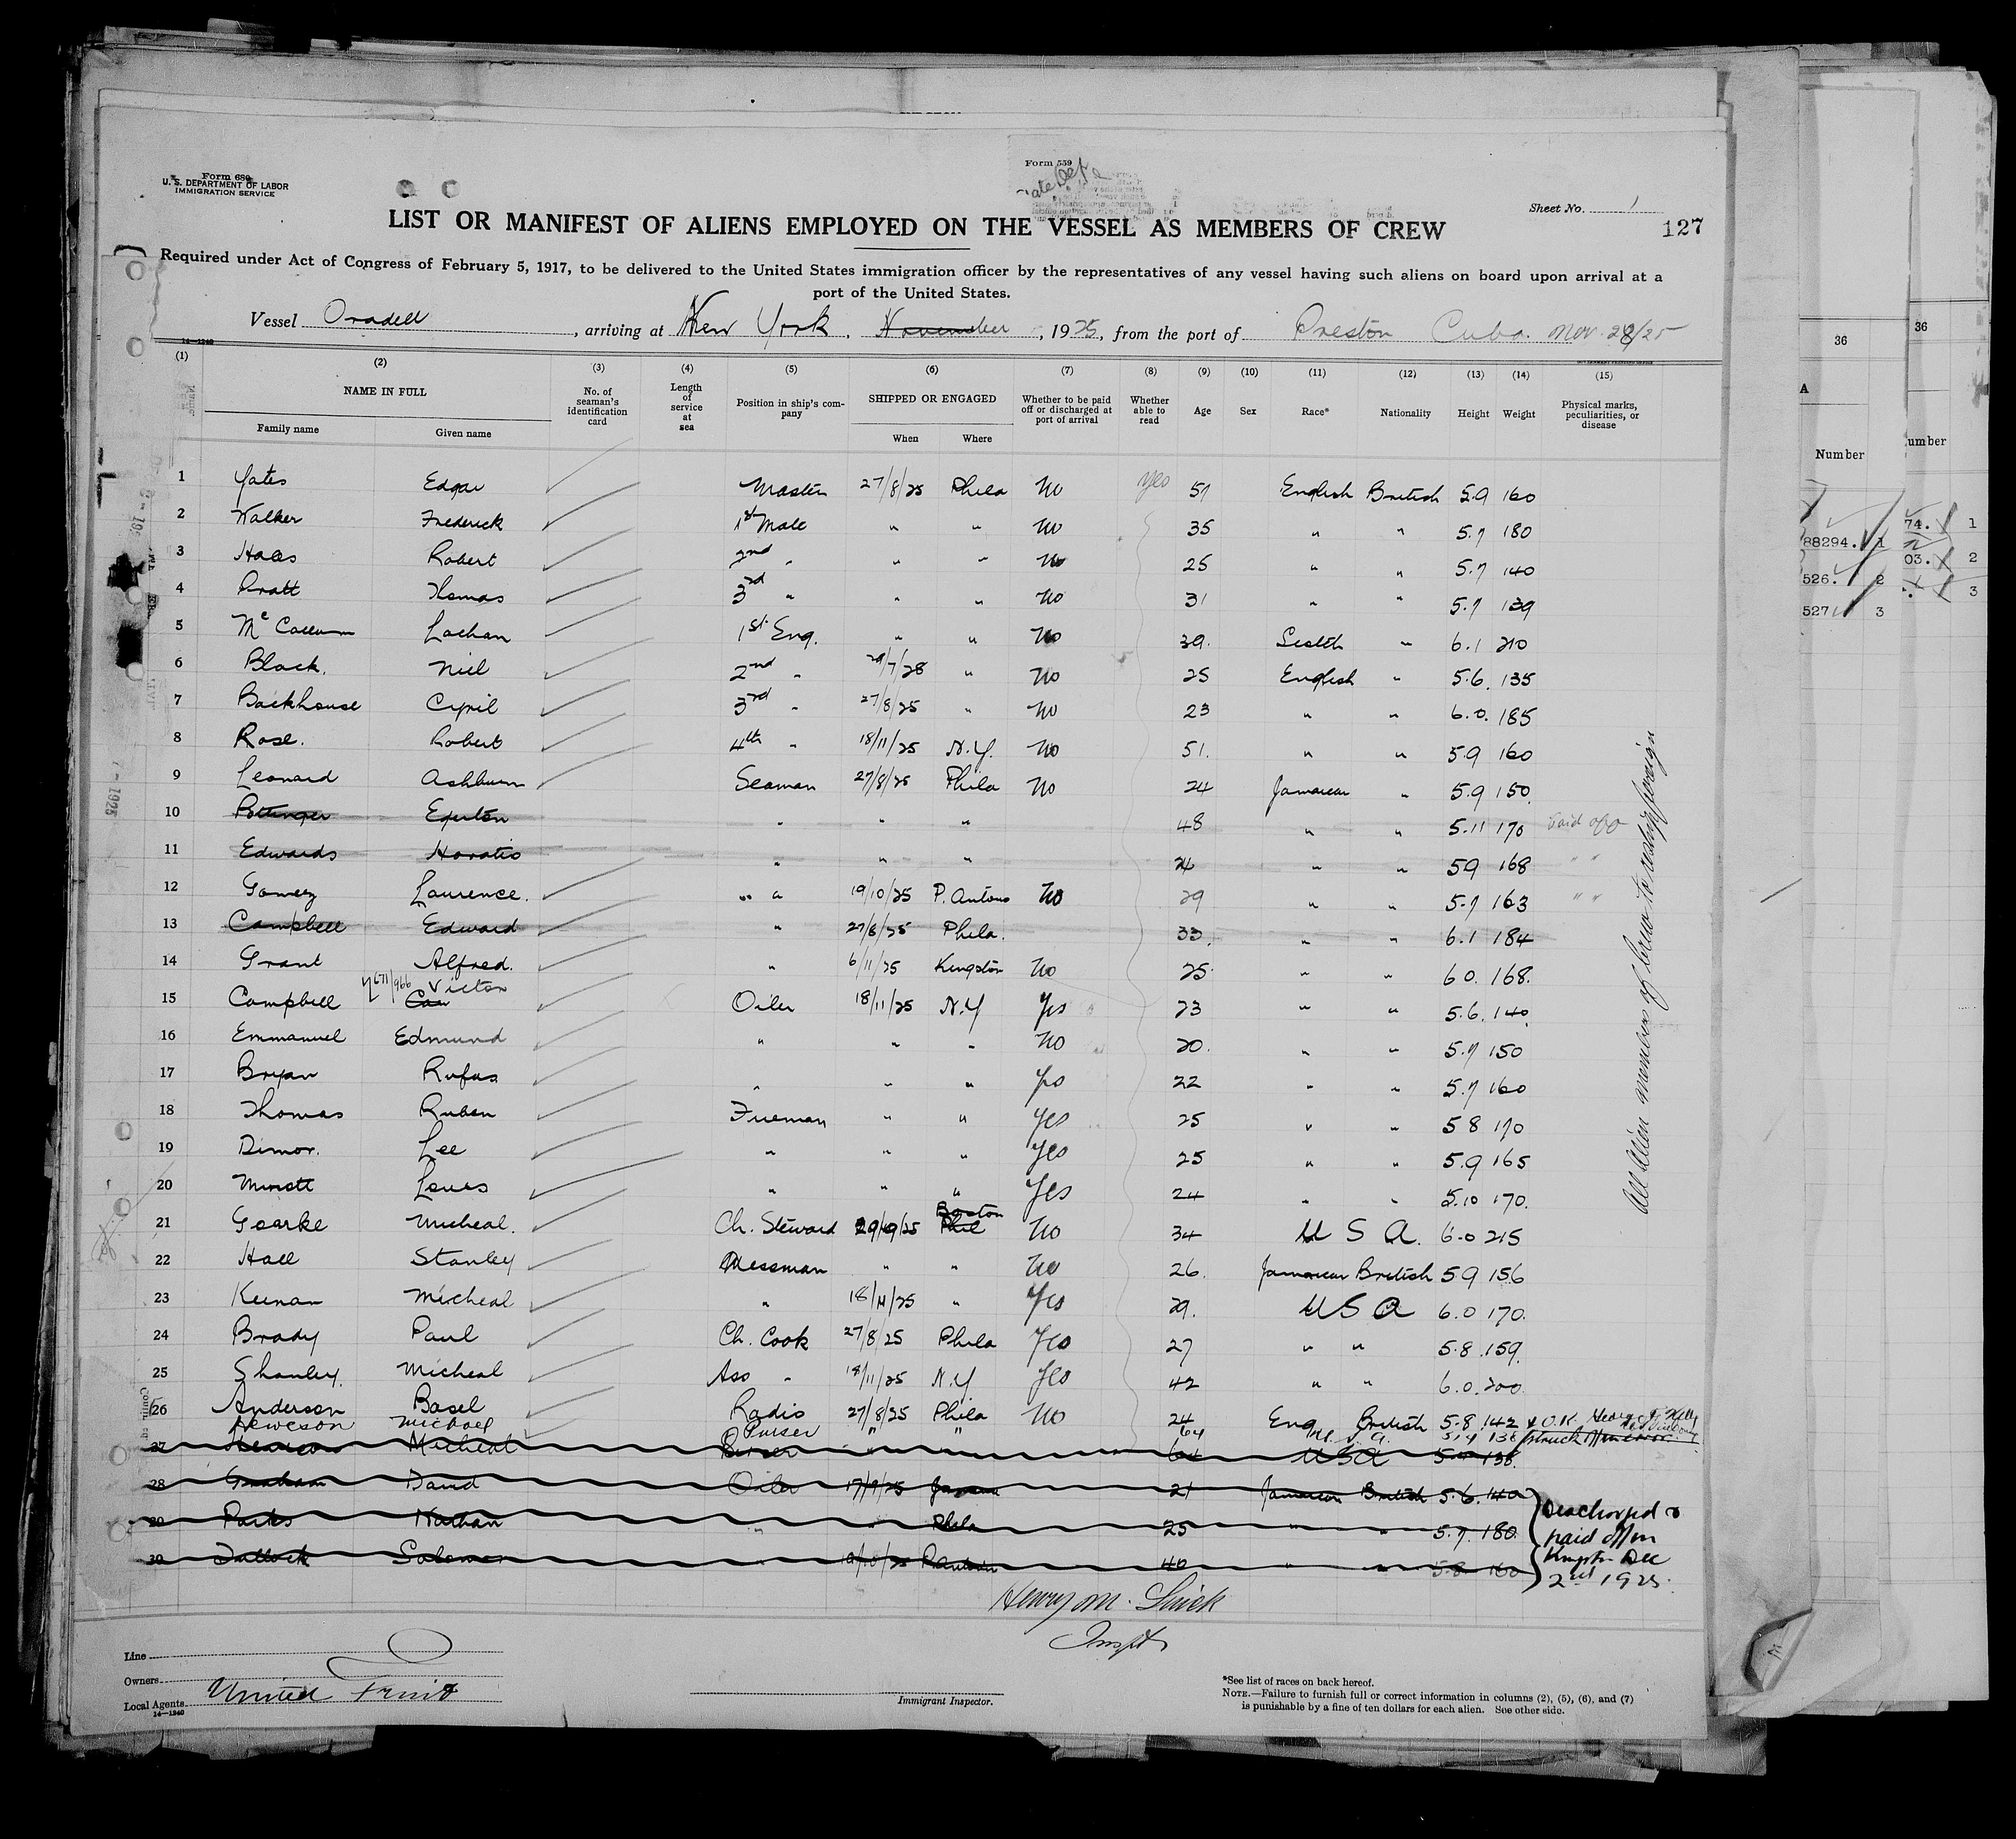 Form 680
U. S. DEPARTMENT OF LABOR
IMMIGRATION SERVICE
Form 559
Sheet No. 1
127
LIST OR MANIFEST OF ALIENS EMPLOYED ON THE VESSEL AS MEMBERS OF CREW
Required under Act of Congress of February 5, 1917, to be delivered to the United States immigration officer by the representatives of any vessel having such aliens on board upon arrival at a
port of the United States.
Vessel Oradell, arriving at New York, November, 1925, from the port of Preston Cuba. Nov. 28/25
14—1240
(1) (2) (3) (4) (5) (6) (7) (8) (9) (10) (11) (12) (13) (14) (15)
NAME IN FULL No. of seaman's identification card Length of service at sea Position in ship's company SHIPPED OR ENGAGED Whether to be paid off or discharged at port of arrival Whether able to read Age Sex Race* Nationality Height Weight Physical marks, peculiarities, or disease
Family name Given name When Where
1 Yates Edgar Master 27/8/25 Phila No Yes 51 English British 5.9 160
2 Walker Frederick 1st Mate " " No 35 " " 5.7 180
3 Robert 2nd " " " No 25 " " 5.7 140
4 Pratt Thomas 3rd " " " No 31 " " 5.7 139
5 McCallum Lachan 1st Eng. " " No 39. " 6.1 210
6 Black. Niel 2nd " " No 25 English " 5.6. 135
7 Backhouse Cyril 3rd " 27/8/25 " No 23 " " 6.0. 185
8 Rose. Robert 4th " 18/11/25 N.Y. No 51. " " 5.9 160
9 Leonard Ashburn Seaman 27/8/25 Phila No 24 Jamaican " 5.9 150.
10 Pottinger Egerton " " " 48 " " 5.11 170 Paid off
11 Edwards Horatio " " " 24 " " 5.9 168 " "
12 Gomez Laurence. " " 19/10/25 P. Antonio No 29 " " 5.7 163 " "
13 Campbell Edward " 27/8/25 Phila. 33. " " 6.1 184
14 Grant Alfred. " 6/11/25 Kingston No 25. " " 6.0. 168.
Victor
15 Campbell Oiler 18/11/25 N.Y Yes 23 " " 5.6. 140.
16 Emmanuel Edmund " " " No 20. " " 5.7 150
17 Bryan Rufus " " " Yes 22 " " 5.7 160
18 Thomas Ruben Fireman " " Yes 25 " " 5.8 170
19 Dimor. Lee " " " Yes 25 " " 5.9 165
20 Louis " " " Yes 24 " " 5.10 170.
Boston
21 Goarke Micheal. Ch. Steward Phil No 34 U S A. 6.0 215
22 Hall Stanley Messman " " No 26. Jamaican British 5.9 156
23 Keenan Micheal " 18/11/25 " Yes 29. U S A 6.0 170.
24 Brady Paul Ch. Cook 27/8/25 Phila Yes 27 " " 5.8. 159.
25 Shanley. Micheal Ass " 18/11/25 N.Y. Yes 42 " " 6.0. 200.
26 Anderson Basel Radio 27/8/25 Phila No 24 Eng British 5.8. 142 O.K.
Michael Purser " " 64 U. S. A. 5.4 138
27 Micheal Purser " " 64 U S A 5.4 138.
28 Graham David Oiler 21 Jamaican British 5.6. 140
29 Parks Nathan " " Phila 25 " " 5.7. 180.
30 Tullock Solomon " 19/10/25 P. Antonio 40 " " 5.8. 160
Discharged & paid off in Kingston Dec 2nd 1925.
All Alien members of crew to reship foreign
Henry M.
Inspt
Line
Owners
Local Agents United Fruit
14—1240
Immigrant Inspector.
*See list of races on back hereof.
NOTE.—Failure to furnish full or correct information in columns (2), (5), (6), and (7)
is punishable by a fine of ten dollars for each alien. See other side.
36
A
Number
88294. 1
526. 2
5271 3
36
umber
74. 1
03. 2
3